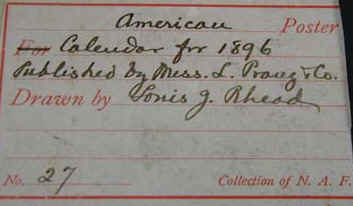 American Poster
For Calendar for 1896
Published by Mess. L. Prang & Co.
Drawn by Louis J. Rhead
No. 27 Collection of N. A. F.